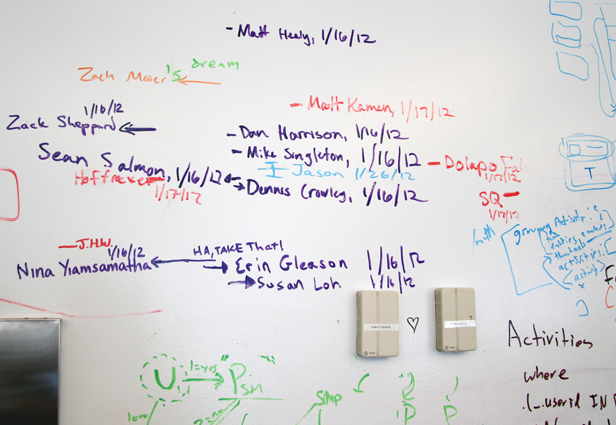 - Matt Healy, 1/16/12
Zach Maier's dream
- Matt Kamen, 1/17/12
1/16/12
Zack Sheppard
- Dan Harrison, 1/16/12
- Mike Singleton, 1/16/12
- Dolapo
1/17/12
Sean Salmon, 1/16/12
Jason 1/26/12
1/17/12
- Dennis Crowley, 1/16/12
SQ
1/17/12
- J.H.W.
1/16/12
HA, TAKE THAT!
Nina Yiamsamatha
Erin Gleason 1/16/12
Susan Loh 1/16/12
T
grouping
activity
Activities
where
userid IN
U
1=yes
Psm
smp
P
P